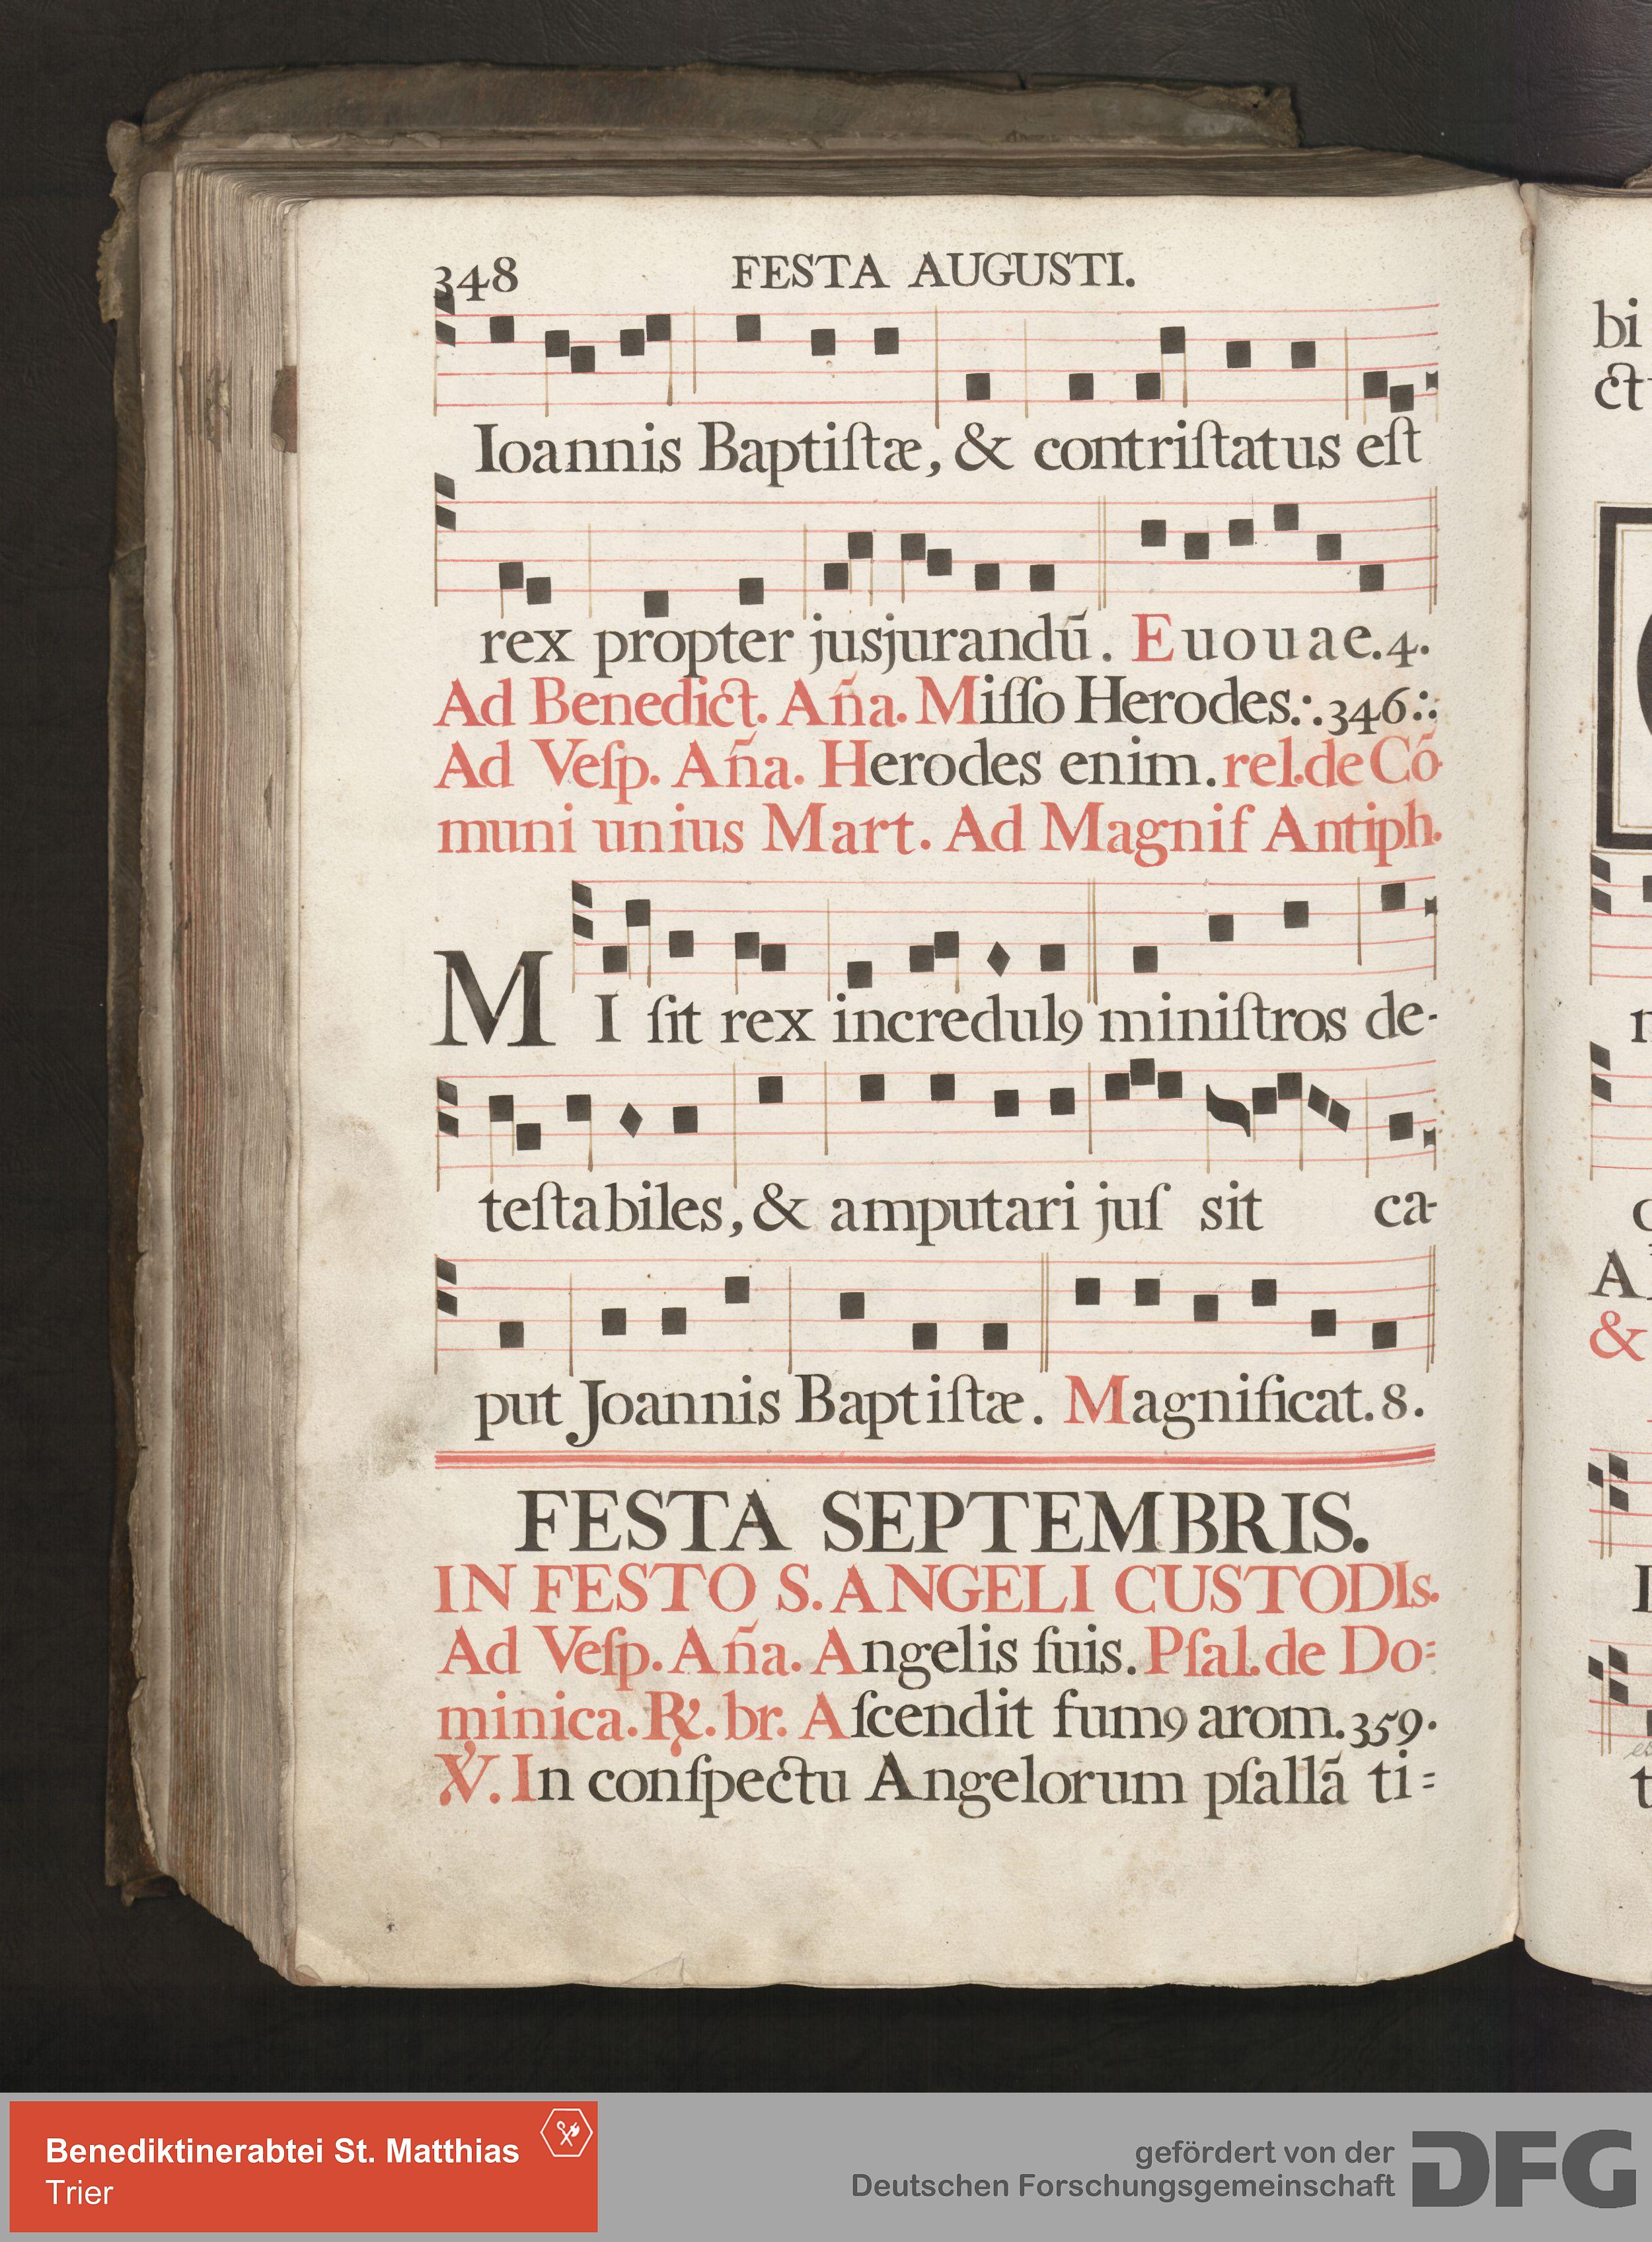 348 FESTA AUGUSTI.
Ioannis Baptiſtæ, & contriſtatus eſt
rex propter jusjurandū. Euouae.4.
Ad Benedict. An̄a. Miſſo Herodes.·.346.·.
Ad Veſp. An̄a. Herodes enim. rel.de Cō
muni unius Mart. Ad Magnif Antiph.
MI ſit rex incredulꝯ miniſtros de-
teſtabiles, & amputari juſ sit ca-
put Joannis Baptiſtæ. Magnificat.8.
FESTA SEPTEMBRIS.
IN FESTO S.ANGELI CUSTODIs.
Ad Veſp. An̄a. Angelis ſuis. Pſal.de Do=
minica. ℟. br. Aſcendit fumꝯ arom.359.
℣. In conſpectu Angelorum pſallā ti=
bi
ct
A
&
Benediktinerabtei St. Matthias
Trier
gefördert von der
Deutschen Forschungsgemeinschaft
DFG